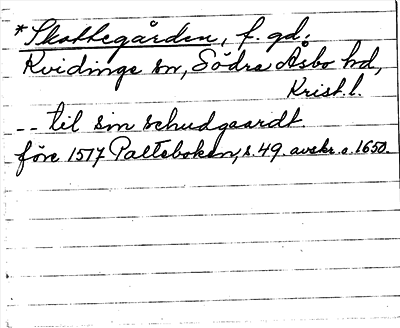 *Skottegården, f. gd.
Kvidinge sn, Södra Åsbo hd,
Krist.l.
-- til sin schudgaardt
före 1577 Palteboken, s. 49. avskr. o. 1650.